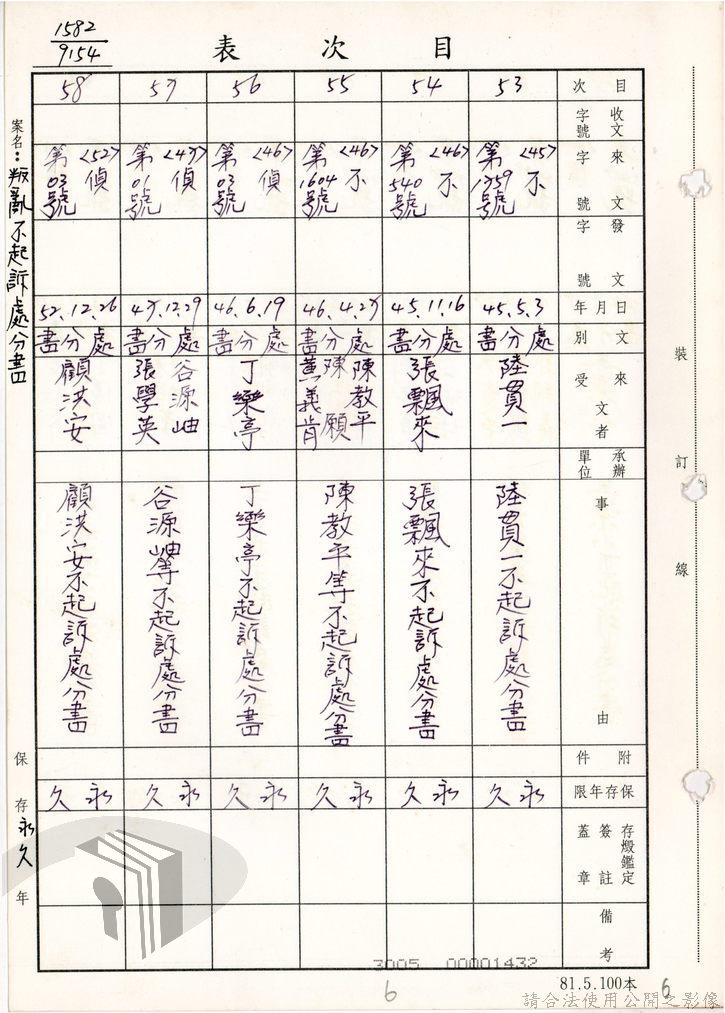 1582
9154
目次表
案名：叛亂不起訴處分書
保存永久年
目次 53 54 55 56 57 58
收文字號
來文字號
<45>不
第1759號
<46>不
第540號
<46>不
第1604號
<46>偵
第03號
<47>偵
第01號
<52>偵
第03號
發文字號
年月日 45.5.3 45.11.16 46.4.27 46.6.19 47.12.29 52.12.26
文別 處分書 處分書 處分書 處分書 處分書 處分書
來受文者
陸貫一
張飄來
陳教平
陳願
黃義肯
丁樂亭
谷源岫
張學英
顧洪安
承辦單位
事由
陸貫一不起訴處分書
張飄來不起訴處分書
陳教平等不起訴處分書
丁樂亭不起訴處分書
谷源岫等不起訴處分書
顧洪安不起訴處分書
附件
保存年限 永久 永久 永久 永久 永久 永久
存燬鑑定簽註蓋章
備考
裝訂線
3005 00001432
6
81.5.100本
6
請合法使用公開之影像